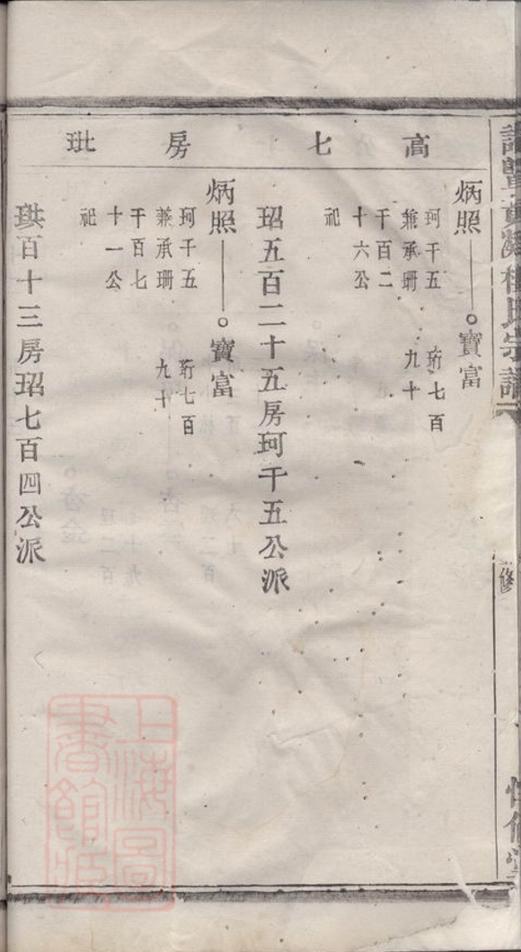 高七房玭
炳照
。寶富
珂千五
兼承珊
千百二
十六公
祀
珩七百
九十
玿五百二十五房珂千五公派
炳照
。寶富
珂千五
兼承珊
千百七
十一公
祀
珩七百
九十
珙百十三房玿七百四公派
氏宗譜
修
上海圖書館藏